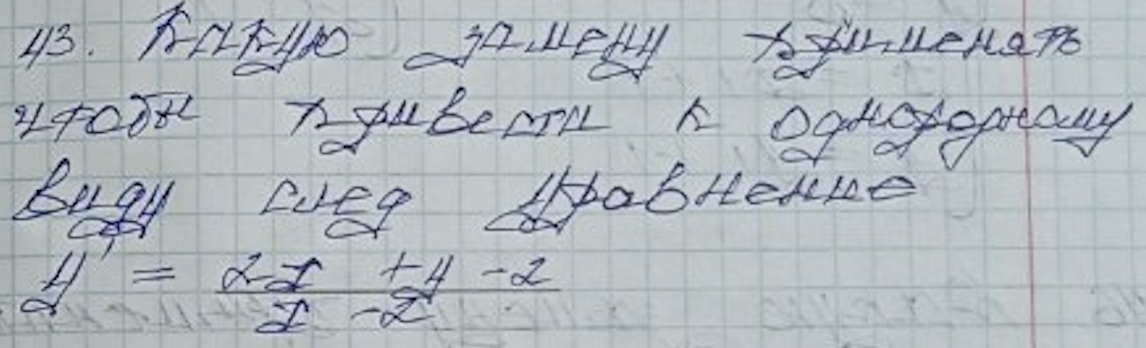 43. Какую замену применять
чтобы привести к однородному
виду след уравнение
y' = 2x + y - 2 / x - 2